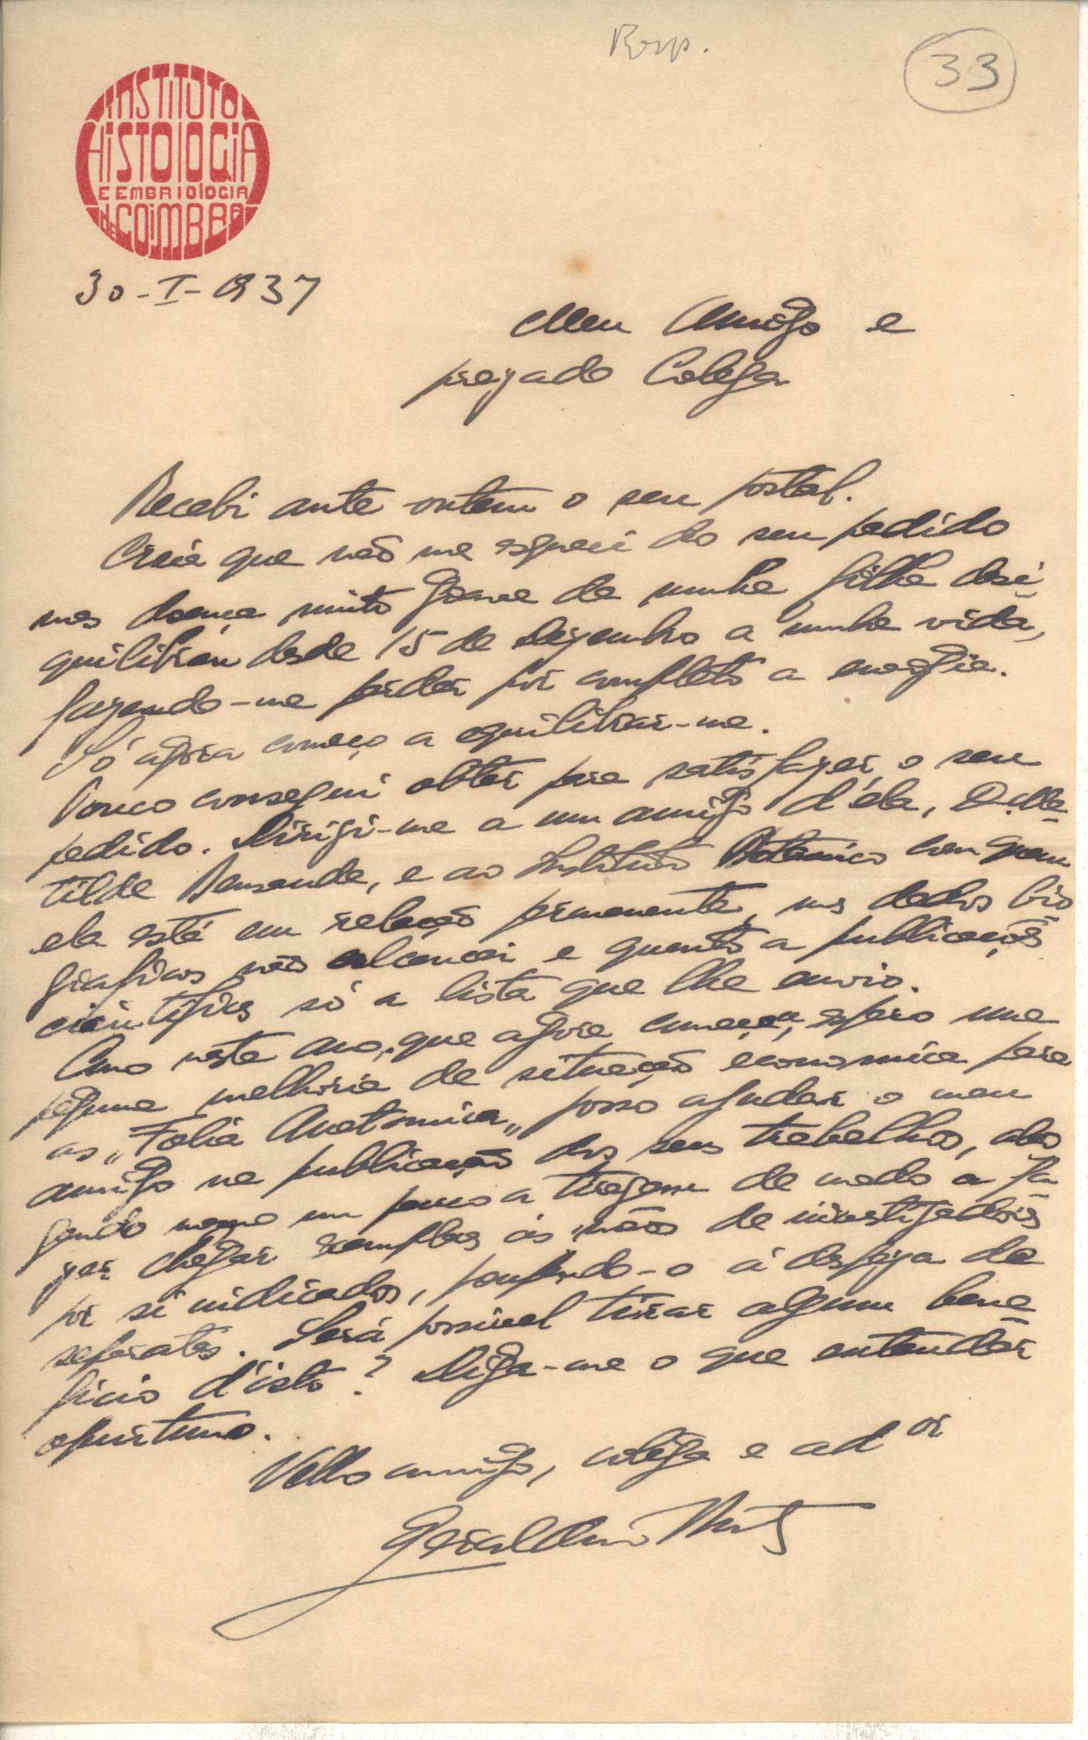 Resp.
33
INSTITUTO
HISTOLOGIA
E EMBRIOLOGIA
DE COIMBRA
30-I-1937
Meu Amigo e
prezado Colega
Recebi ante ontem o seu postal.
Creia que não me esqueci do seu pedido
mas doença muito grave de minha filha dese-
quilibrou desde 15 de Dezembro a minha vida,
fazendo-me perder por completo a energia.
Só agora começo a equilibrar-me.
Pouco consegui obter para satisfazer o seu
pedido. Dirigi-me a um amigo d'ela, D. Ma-
tilde Bensaude, e ao Instituto Botanico com quem
ela está em relação permanente, mas dados bio
graficos não alcancei e quanto a publicações
cientificas só a lista que lhe envio.
Como neste ano, que agora começa, espero uma
pequena melhoria de situação economica para
as "Folia Anatomica" posso ajudar o meu
amigo na publicação dos seus trabalhos,
mesmo um pouco a tiragem de modo a fa
zer chegar exemplares ás mãos de investigadores
por si indicados, poupando-o á despeza de
separatas. Será possivel tirar algum bene
ficio d'isto? Diga-me o que entender
oportuno.
Velho amigo, colega e ad.or
Geraldino Brites